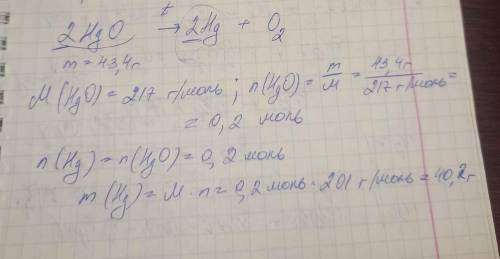 2HgO →t 2Hg + O₂
m = 43,4г
M (HgO) = 217 г/моль ; n(HgO) = m/M = 43,4г/217 г/моль =
= 0,2 моль
n(Hg) = n(HgO) = 0,2 моль
m (Hg) = M · n = 0,2 моль · 201 г/моль = 40,2 г